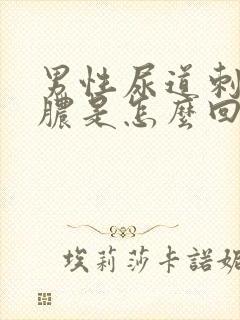 男性尿道刺
膿是怎麼回
埃莉莎卡諾妮